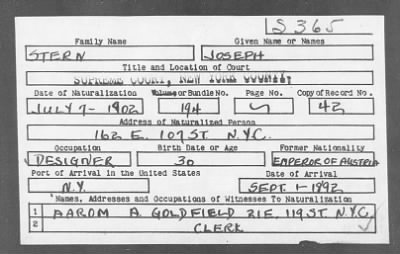 S 365
Family Name Given Name or Names
STERN JOSEPH
Title and Location of Court
SUPREME COURT, NEW YORK COUNTY.
Date of Naturalization Volume or Bundle No. Page No. Copy of Record No.
JULY 7- 1902 194 42
Address of Naturalized Person
162 E. 107 ST. N.Y.C.
Occupation Birth Date or Age Former Nationality
DESIGNER 30 EMPEROR OF AUSTRIA
Port of Arrival in the United States Date of Arrival
N.Y. SEPT. 1- 1892
Names, Addresses and Occupations of Witnesses To Naturalization
1 AAROM A. GOLDFIELD 21 E. 119 ST. N.Y.C.
2 CLERK